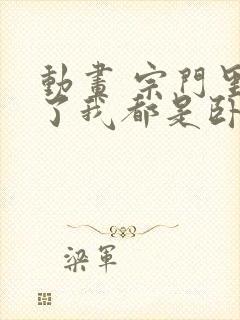 動畫 宗門里
了我都是臥
梁軍